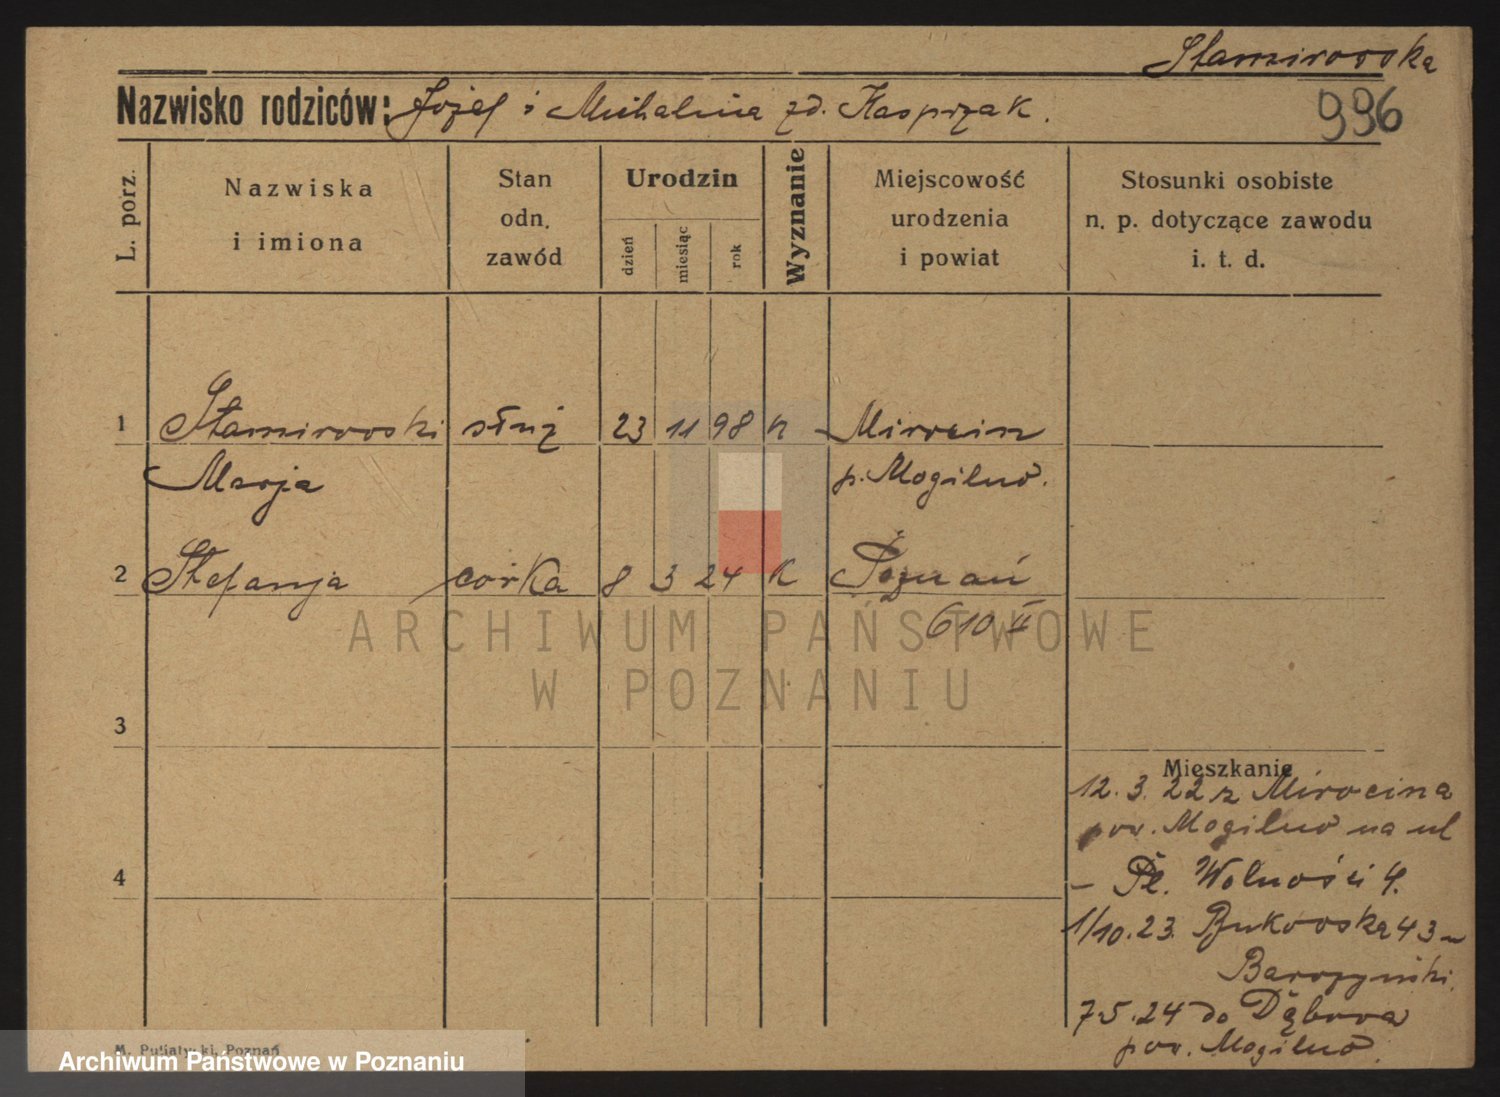 Stamirowska
Nazwisko rodziców: Józef i Michalina zd. Kasprzak.
996
L. porz.
Nazwiska
i imiona
Stan
odn.
zawód
Urodzin
dzień
miesiąc
rok
Wyznanie
Miejscowość
urodzenia
i powiat
Stosunki osobiste
n. p. dotyczące zawodu
i. t. d.
1 Stamirowski służ 23 11 98 k Mirocin
Marja p. Mogilno.
2 Stefanja córka 8 3 24 k Poznań
610 II
ARCHIWUM PAŃSTWOWE
W POZNANIU
3
Mieszkanie
12. 3. 22 z Mirocina
pow. Mogilno na ul
4
– Pl. Wolności 4.
1/10.23. Bukowska 43 –
7.5.24 do Dąbrowa
pow. Mogilno.
M. Putiatycki, Poznań
Archiwum Państwowe w Poznaniu